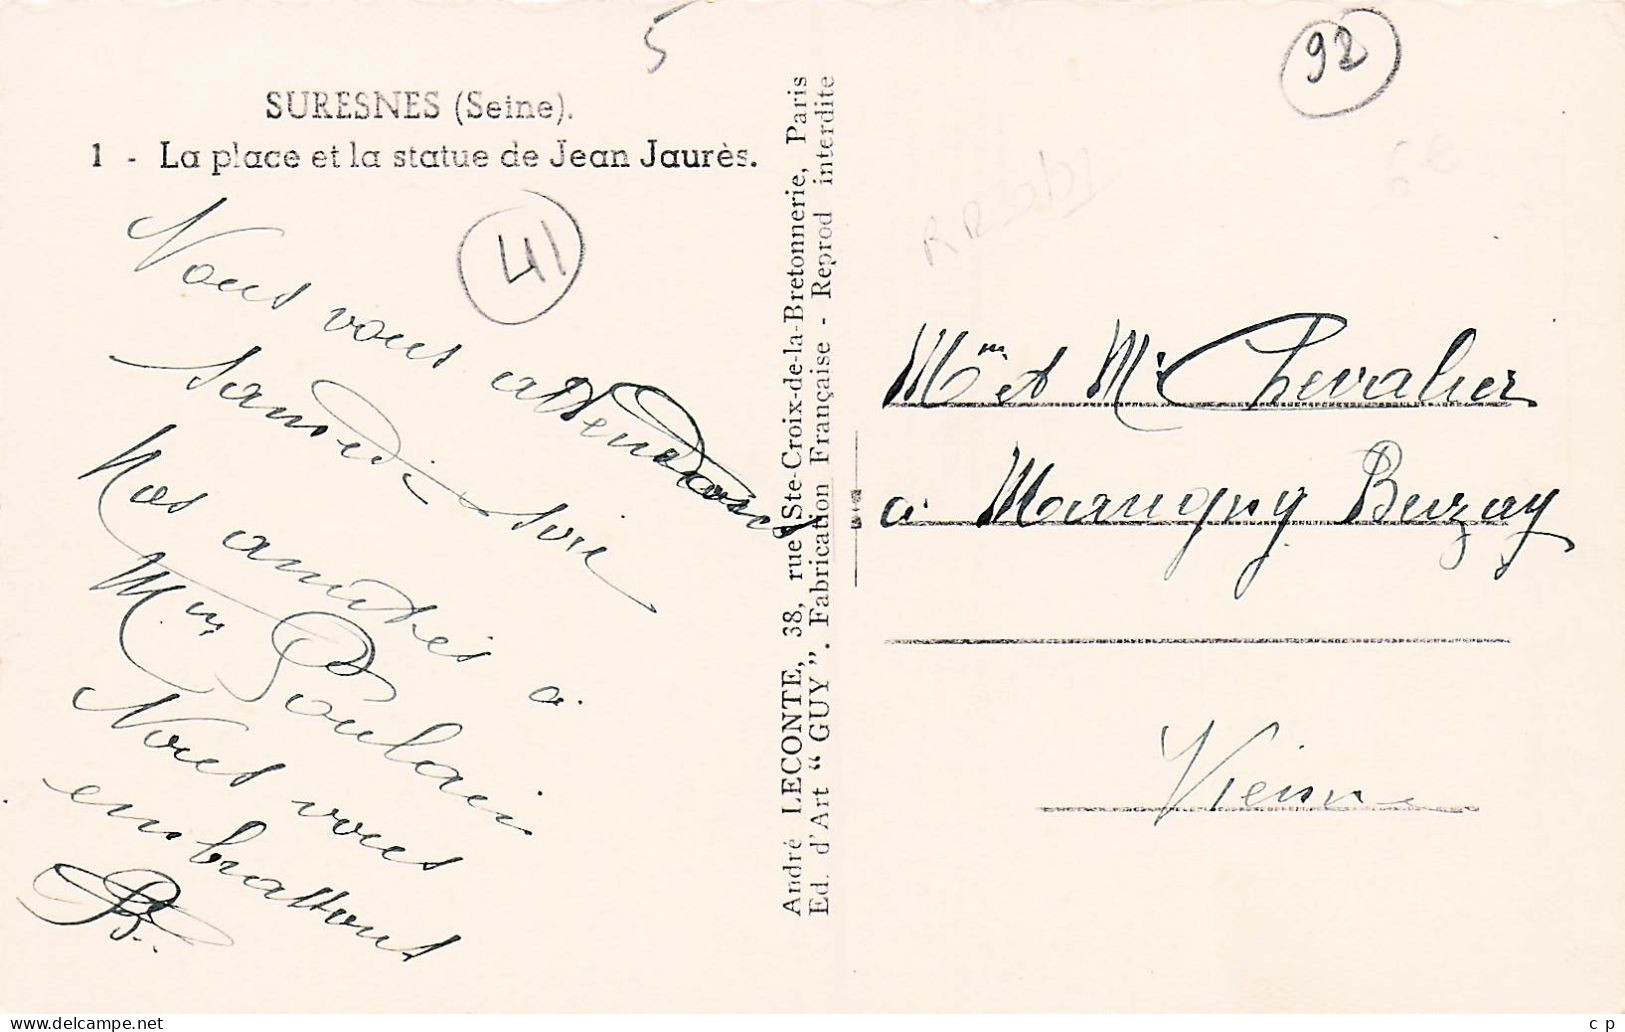 5
92
SURESNES (Seine).
1 - La place et la statue de Jean Jaurès.
41
Nous vous attendons
samedi soir
Nos amitiés à
Mm Poulain
Nous vous
embrassons
André LECONTE, 38, rue Ste-Croix-de-la-Bretonnerie, Paris
Ed. d'Art “ GUY ”. Fabrication Française - Reprod interdite
6e
Mm et Mr Chevalier
à Marigny Brizay
Vienne
c p